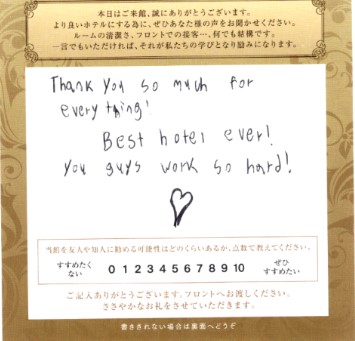 本日はご来館、誠にありがとうございます。
より良いホテルにする為に、ぜひあなた様の声をお聞かせください。
ルームの清潔さ、フロントでの接客…、何でも結構です。
一言でもいただければ、それが私たちの学びとなり励みになります。
Thank you so much for
everything!
Best hotel ever!
you guys work so hard!
当館を友人や知人に勧める可能性はどのくらいあるか、点数で教えてください。
すすめたく
ない
0 1 2 3 4 5 6 7 8 9 10
ぜひ
すすめたい
ご記入ありがとうございます。フロントへお渡しください。
ささやかなお礼をさせていただきます。
書ききれない場合は裏面へどうぞ